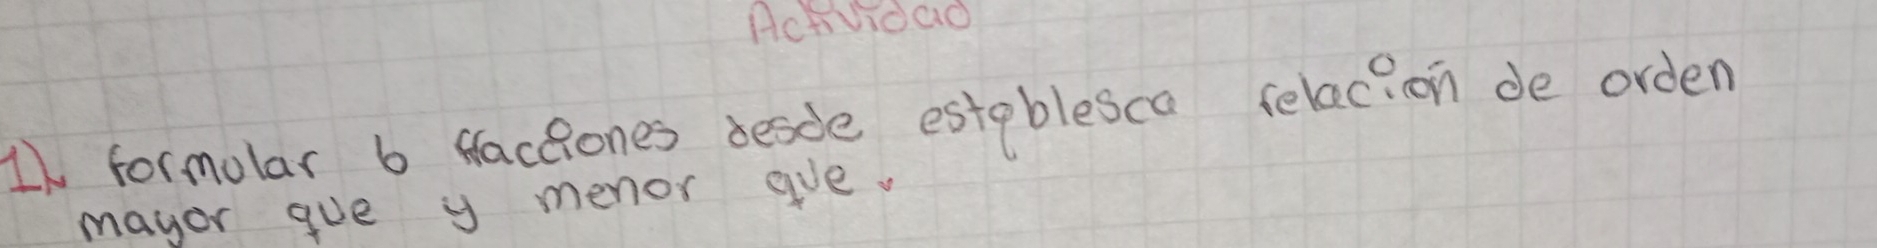 Actividad
1) formular 6 fracciones desde establesca relación de orden
mayor que y menor que.